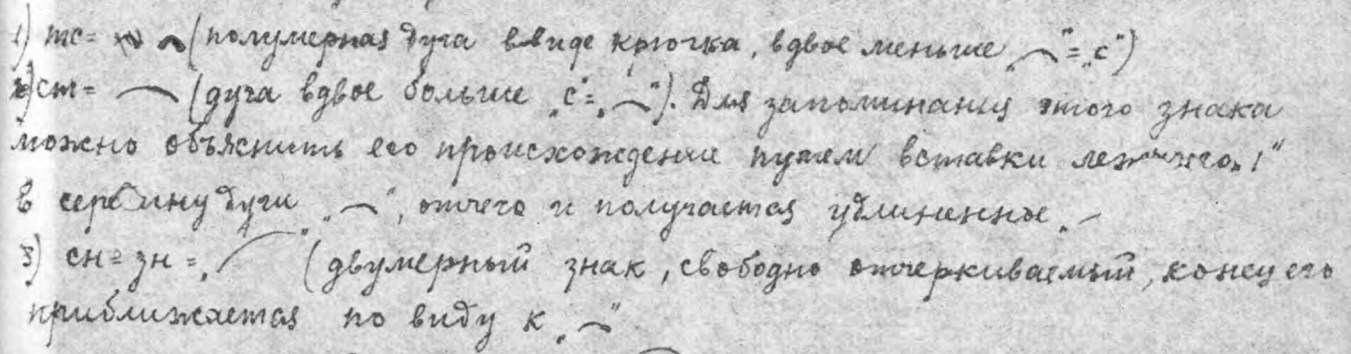 1) тс= ⌒ (полумерная дуга в виде крючка, вдвое меньше „⌒"=„с")
2) ст= ⌒ (дуга вдвое больше „с"=„⌒"). Для запоминания этого знака
можно объяснить его происхождение путем вставки лежачего „1"
в середину дуги „⌒", отчего и получается удлиненное „⌒
3) сн=зн=„⌒ (двумерный знак, свободно отчеркиваемый, конец его
приближается по виду к „⌒"